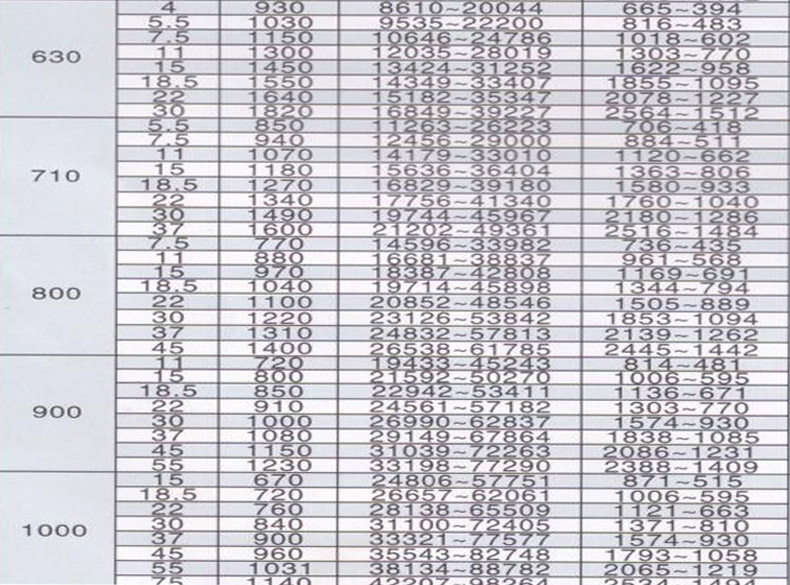 4 930 8610~20044 665~394
5.5 1030 9535~22200 816~483
7.5 1150 10646~24786 1018~602
11 1300 12035~28019 1303~770
630
15 1450 13424~31252 1622~958
18.5 1550 14349~33407 1855~1095
22 1640 15182~35347 2078~1227
30 1820 16849~39227 2564~1512
5.5 850 11263~26223 706~418
7.5 940 12456~29000 884~511
11 1070 14179~33010 1120~662
15 1180 15636~36404 1363~806
710
18.5 1270 16829~39180 1580~933
22 1340 17756~41340 1760~1040
30 1490 19744~45967 2180~1286
37 1600 21202~49361 2516~1484
7.5 770 14596~33982 736~435
11 880 16681~38837 961~568
15 970 18387~42808 1169~691
18.5 1040 19714~45898 1344~794
800
22 1100 20852~48546 1505~889
30 1220 23126~53842 1853~1094
37 1310 24832~57813 2139~1262
45 1400 26538~61785 2445~1442
11 720 19433~45243 814~481
15 800 21592~50270 1006~595
18.5 850 22942~53411 1136~671
22 910 24561~57182 1303~770
900
30 1000 26990~62837 1574~930
37 1080 29149~67864 1838~1085
45 1150 31039~72263 2086~1231
55 1230 33198~77290 2388~1409
15 670 24806~57751 871~515
18.5 720 26657~62061 1006~595
22 760 28138~65509 1121~663
30 840 31100~72405 1371~810
1000
37 900 33321~77577 1574~930
45 960 35543~82748 1793~1058
55 1031 38134~88782 2065~1219
75 1140 42207~98264